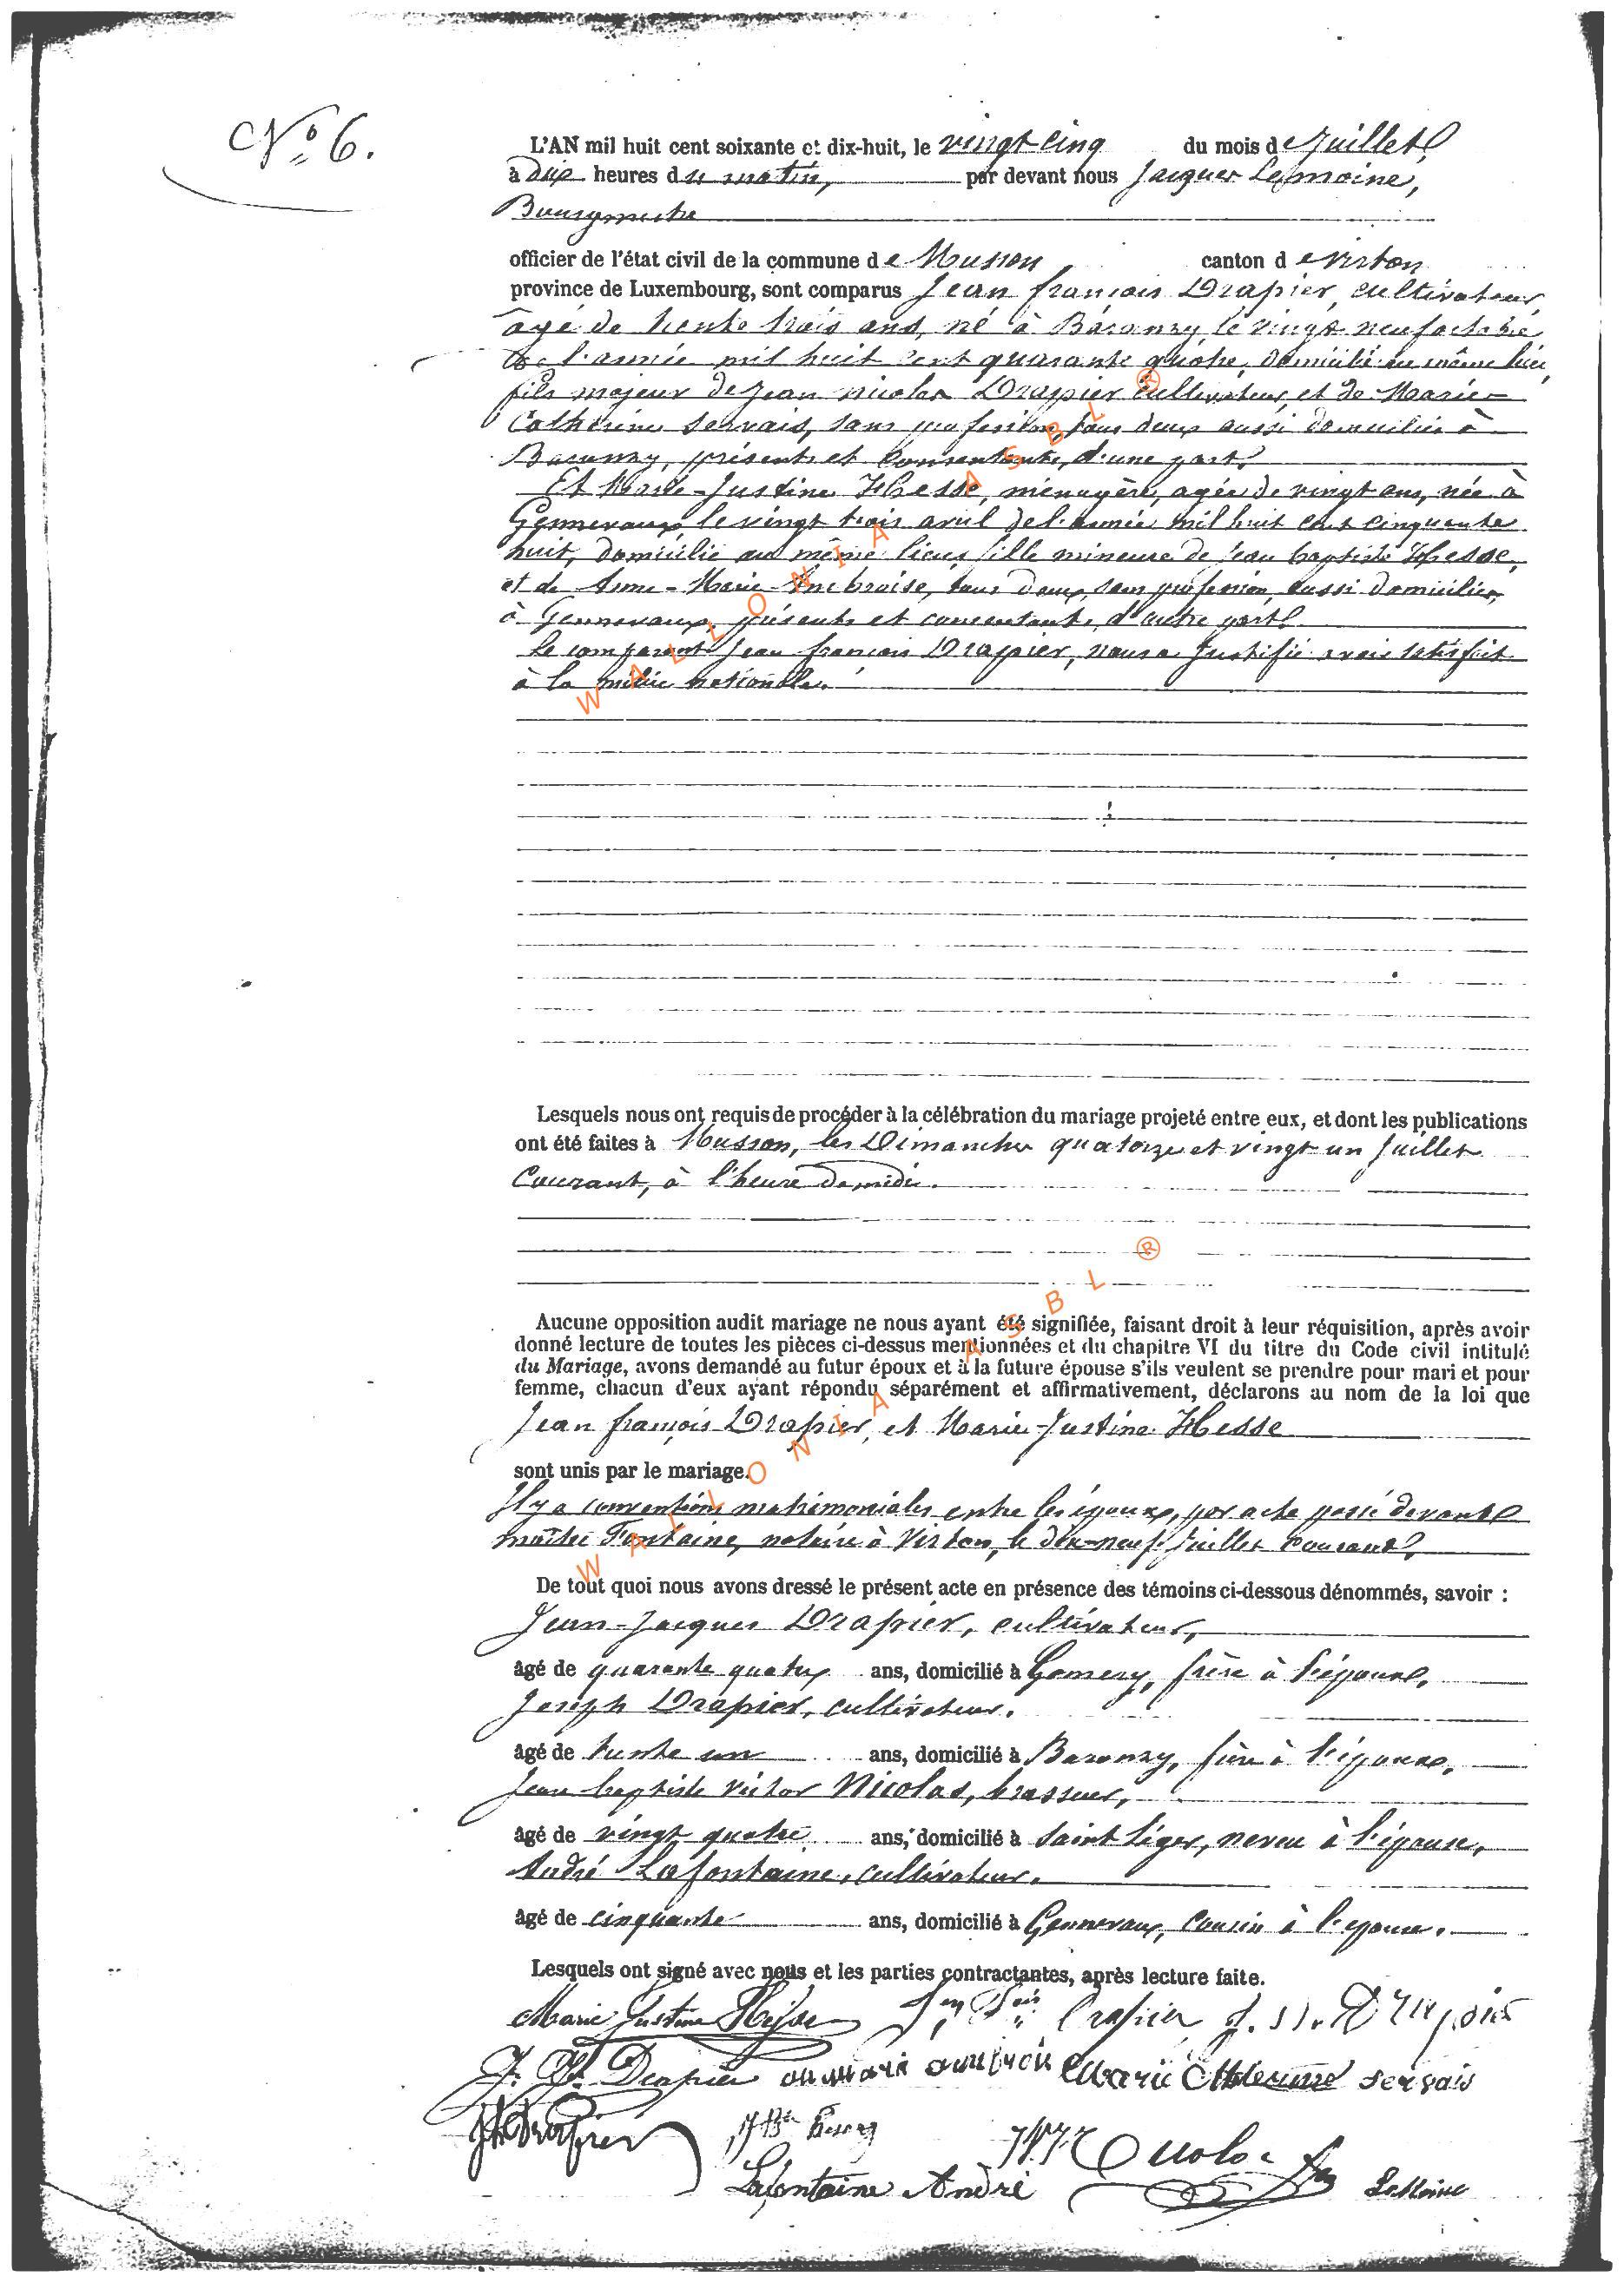 N° 6.
L'AN mil huit cent soixante et dix-huit, le vingt cinq du mois de Juillet,
à dix heures du matin, par devant nous Jacques Lemoine,
Bourgmestre
officier de l'état civil de la commune de Musson canton de Virton
province de Luxembourg, sont comparus Jean françois Drapier, cultivateur
âgé de trente trois ans, né à Baranzy, le vingt neuf octobre
de l'année mil huit cent quarante quatre, domicilié au même lieu,
fils majeur de Jean nicolas Drapier cultivateur, et de Marie-
Catherine Servais, sans profession, tous deux aussi domiciliés à
Baranzy, présents et consentants, d'une part.
Et Marie-Justine Hesse, ménagère, agée de vingt ans, née à
Gennevaux le vingt trois avril de l'année mil huit cent cinquante
huit, domicilié au même lieu, fille mineure de Jean baptiste Hesse,
et de Anne-Marie Ambroise, tous deux, sans profession, aussi domiciliés,
à Gennevaux, présents et consentants, d'autre part.
Le comparant Jean françois Drapier, nous a justifié avoir satisfait
à la milice nationale.
Lesquels nous ont requis de procéder à la célébration du mariage projeté entre eux, et dont les publications
ont été faites à Musson, les Dimanches quatorze et vingt un Juillet
Courant, à l'heure de midi.
Aucune opposition audit mariage ne nous ayant été signifiée, faisant droit à leur réquisition, après avoir
donné lecture de toutes les pièces ci-dessus mentionnées et du chapitre VI du titre du Code civil intitulé
du Mariage, avons demandé au futur époux et à la future épouse s'ils veulent se prendre pour mari et pour
femme, chacun d'eux ayant répondu séparément et affirmativement, déclarons au nom de la loi que
Jean françois Drapier, et Marie-Justine Hesse
sont unis par le mariage.
Il y a conventions matrimoniales entre les époux, par acte passé devant
maître Fontaine, notaire à Virton, le dix-neuf Juillet courant.
De tout quoi nous avons dressé le présent acte en présence des témoins ci-dessous dénommés, savoir :
Jean-Jacques Drapier, cultivateur,
âgé de quarante quatre ans, domicilié à Gomery, frère à l'époux,
Joseph Drapier, cultivateur,
âgé de trente un ans, domicilié à Baranzy, frère à l'époux,
Jean baptiste Victor Nicolas, brasseur,
âgé de vingt quatre ans, domicilié à Saint Léger, neveu à l'épouse,
André Lafontaine, cultivateur,
âgé de cinquante ans, domicilié à Gennevaux, cousin à l'épouse.
Lesquels ont signé avec nous et les parties contractantes, après lecture faite.
Marie Justine Hesse Drapier J. N. Drapier
J. J. Drapier Marie Servais
Drapier
Lafontaine André Lemoine
WALLONIA ASBL ®
WALLONIA ASBL ®